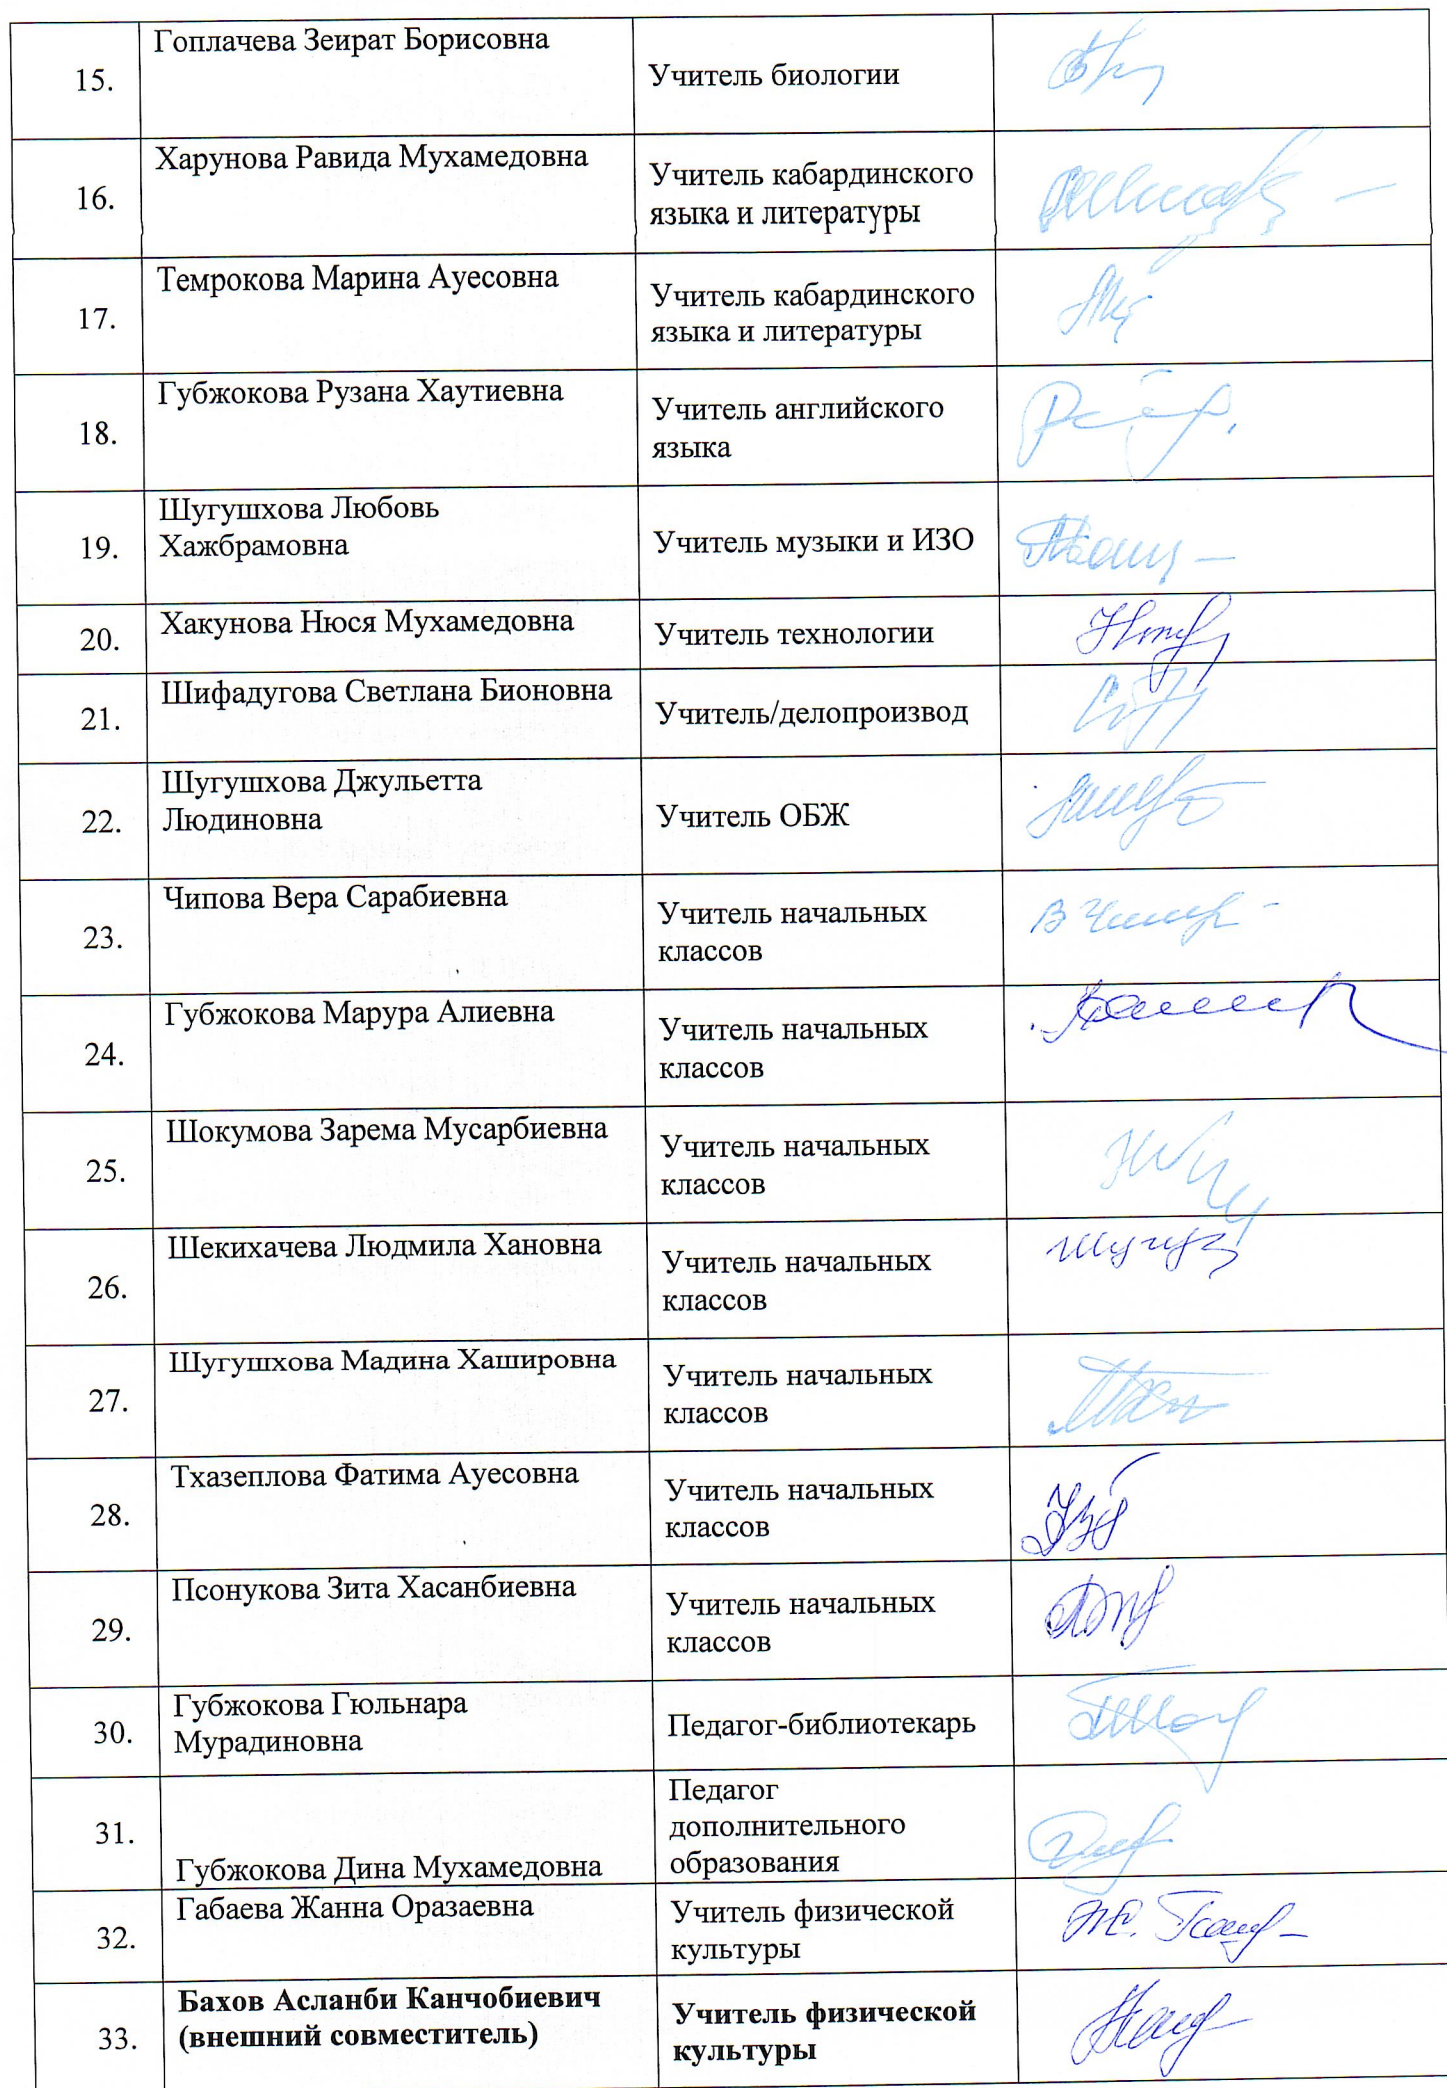 15.
Гоплачева Зеират Борисовна
Учитель биологии
16.
Харунова Равида Мухамедовна
Учитель кабардинского
языка и литературы
17.
Темрокова Марина Ауесовна
Учитель кабардинского
языка и литературы
18.
Губжокова Рузана Хаутиевна
Учитель английского
языка
19.
Шугушхова Любовь
Хажбрамовна
Учитель музыки и ИЗО
20.
Хакунова Нюся Мухамедовна
Учитель технологии
21.
Шифадугова Светлана Бионовна
Учитель/делопроизвод
22.
Шугушхова Джульетта
Людиновна
Учитель ОБЖ
23.
Чипова Вера Сарабиевна
Учитель начальных
классов
24.
Губжокова Марура Алиевна
Учитель начальных
классов
25.
Шокумова Зарема Мусарбиевна
Учитель начальных
классов
26.
Шекихачева Людмила Хановна
Учитель начальных
классов
27.
Шугушхова Мадина Хашировна
Учитель начальных
классов
28.
Тхазеплова Фатима Ауесовна
Учитель начальных
классов
29.
Псонукова Зита Хасанбиевна
Учитель начальных
классов
30.
Губжокова Гюльнара
Мурадиновна
Педагог-библиотекарь
31.
Губжокова Дина Мухамедовна
Педагог
дополнительного
образования
32.
Габаева Жанна Оразаевна
Учитель физической
культуры
33.
Бахов Асланби Канчобиевич
(внешний совместитель)
Учитель физической
культуры